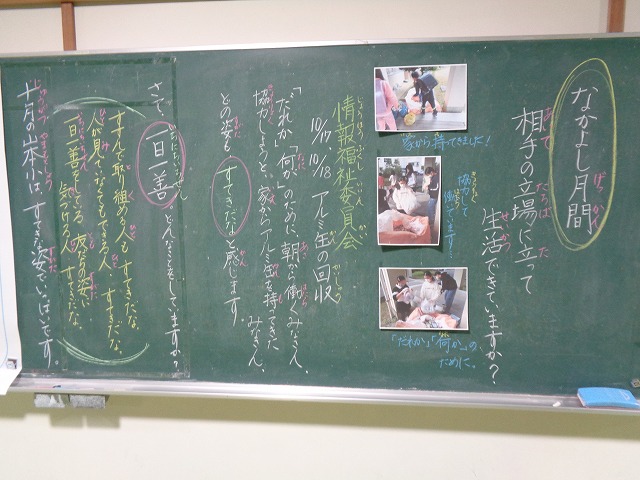 なかよし月間
相手の立場に立って
生活できていますか?
家から持ってきました!
協力して
働いています…
「だれか」「何か」の
ために。
情報福祉委員会
10/17、10/18 アルミ缶の回収
「だれか」「何か」のために、朝から働くみなさん、
協力しようと、家からアルミ缶を持ってきた
みなさん、
どの姿も すてきだな と感じます。
さて 一日一善 どんなことをしていますか?
すすんで取り組める人も すてきだな。
人が見ていなくてもできる人 すてきだな。
一日一善をしている 友だちの姿に
気づける人 すてきだな。
十月の山本小は、すてきな姿でいっぱいです。